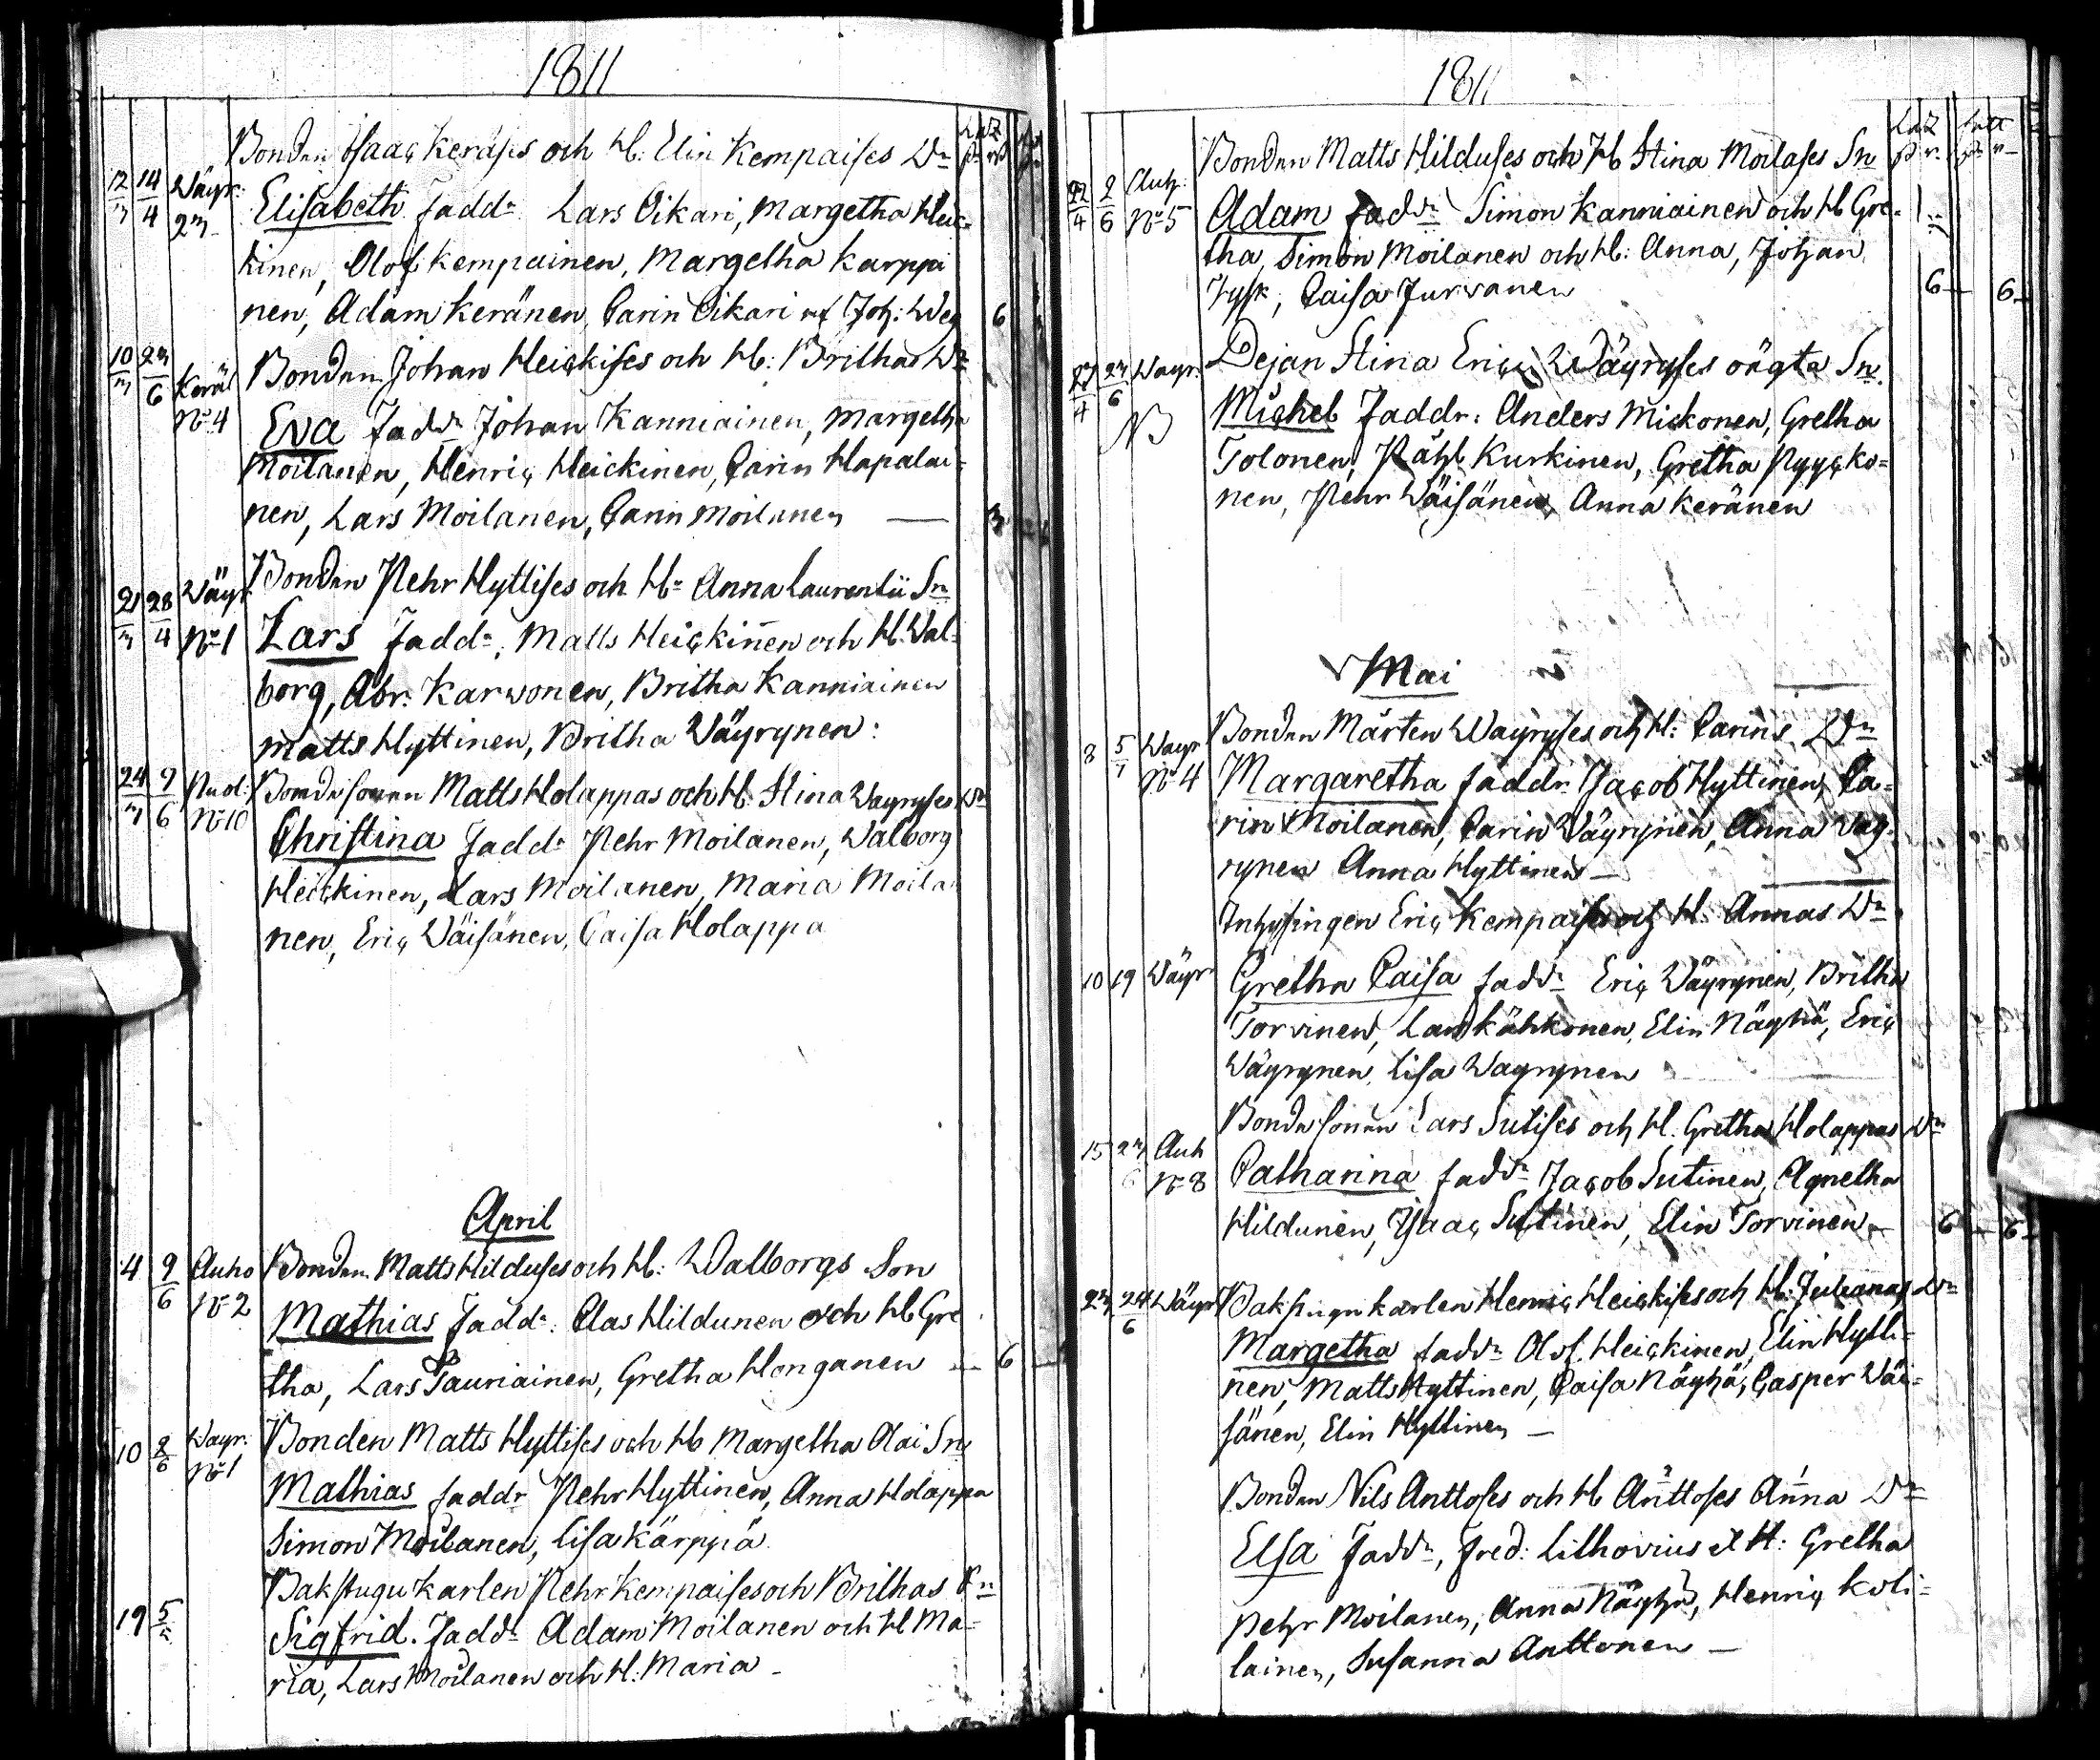 1811
Bonden Isaac Keräses och H: Elin Kempaises Dr
12/3 14/4 Wäyr: 23 Elisabeth Faddr Lars Oikari, Margetha Heic-
kinen, Olof Kempainen, Margetha Karppi
nen, Adam Keränen, Carin Oikari Joh: 6
10/3 23/6 Bonden Johan Heickises och H: Brithas Dr
No 4 Eva Faddr Johan Kanniainen, Margetha
Moilanen, Henric Heickinen, Carin Hapalai-
nen, Lars Moilanen, Carin Moilanen — 3
Bonden Pehr Hyttises och H: Anna Laurentii Sn
21/3 28/4 Wäyr No 1 Lars Faddr, Matts Heickinen och H. Wal-
borg, Abr. Karwonen, Britha Kanniainen
Matts Hyttinen, Britha Wäyrynen:
24/3 9/6 Puol: No 10 Bondesonen Matts Holappas och H: Stina Wäyryses Dr
Christina Faddr Pehr Moilanen, Walborg
Heickinen, Lars Moilanen, Maria Moila
nen, Eric Wäisänen, Caisa Holappa
April
4 9/6 Auho No 2 Bonden Matts Hilduses och H: Walborgs Son
Mathias Faddr: Clas Hildunen och H Gre
tha, Lars Tauriainen, Gretha Honganen — 6 —
10 9/6 Wäyr: No 1 Bonden Matts Hyttises och H Margetha Olai Sn
Mathias faddr Pehr Hyttinen, Anna Holappa
Simon Moilanen, Lisa Kärppä
Bakstugu Karlen Pehr Kempaises och Brithas Sn
19 Sigfrid. Faddr Adam Moilanen och H Ma-
ria, Lars Moilanen och H: Maria —
1811
Bonden Matts Hilduses och H Stina Moilases Sn
22/4 9/6 Auh: No 5 Adam Faddr Simon Kanniainen och H Gre-
tha, Simon Moilanen och H: Anna, Johan
Tysk, Caisa Jurvanen 6 — 6
Pejan Stina Erics Wäyryses oägta Sn
27/4 23/6 Wäyr. Michel Faddr: Anders Mickonen, Gretha
NB Tolonen, Påhl Kurkinen, Gretha Pyycko=
nen, Pehr Wäisänen, Anna Keränen
Mai
Bonden Mårten Wäyryses och H: Carins Dr
8 Wäyr No 4 Margaretha faddr. Jacob Hyttinen, Ca-
rin Moilanen, Carin Wäyrynen, Anna Wäy-
rynen Anna Hyttinen —
Inhysingen Eric Kempaises och H: Annas Dr
10 19 Wäyr Gretha Caisa faddr Eric Wäyrynen, Britha
Torvinen, Lars Kähkonen, Elin Näyhä, Eric
Wäyrynen, Lisa Wäyrynen
Bondesonen Lars Sutises och H. Gretha Holappas Dr
15 23/6 Auh No 8 Catharina faddr Jacob Sutinen, Agnetha
Hildunen, Isaac Sutinen, Elin Torvinen — 6 — 6
23 24/6 Wäyr Bakstugu karlen Henric Heickises och H: Julianas Dr
Margetha faddr Olof. Heickinen, Elin Hytti=
nen, Matts Hyttinen, Caisa Näyhä, Casper Wäi-
sänen, Elin Hyttinen —
Bonden Nils Anttoses och H Anttoses Anna Dr
Elsa Faddr, Fred: Lithovius et H: Gretha
Pehr Moilanen, Anna Näyhä, Henric Koli=
lainen, Susanna Anttonen —